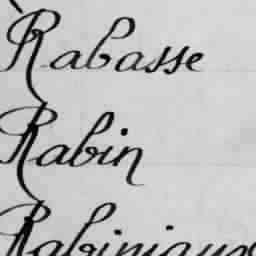 Rabasse
Rabin